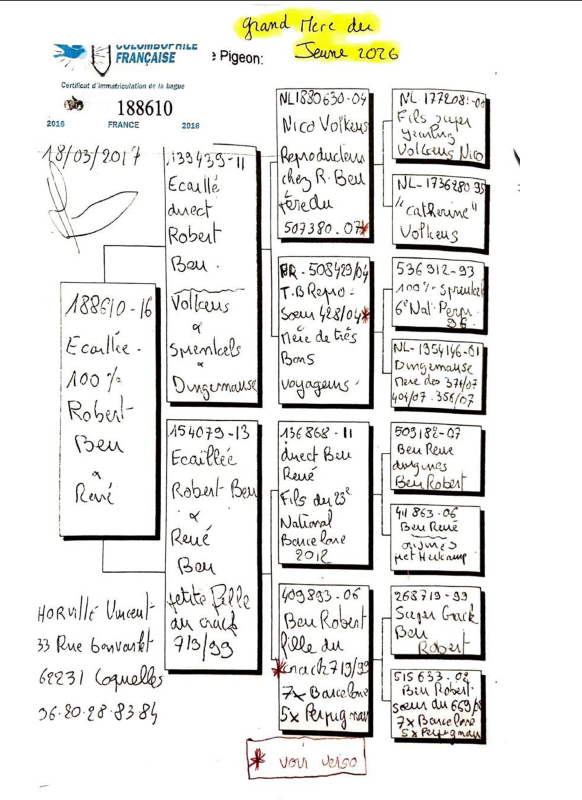 grand Mère du
Jeune 2026
COLOMBOPHILE
FRANÇAISE
e Pigeon:
Certificat d'immatriculation de la bague
188610
2016 FRANCE 2016
18/03/2017
188610-16
Ecaillée.
100%
Robert-
Ben
&
René
139439-11
Ecaillé
direct
Robert
Ben.
Volkens
&
Sprenkels
&
Dingemanse
154079-13
Ecaillée
Robert-Ben
&
René
Ben
petite fille
du crack
719/99
NL1880630-04
Nico Volkens
Reproducteur
chez R. Ben
frère du
507380.07*
FR-508429/04
T.B Repro-
Sœur 428/04*
Mère de très
Bons
voyageurs.
136868-11
direct Ben
René
Fils du 23e
National
Barcelone
2012
409893-06
Ben Robert
fille du
*crack 719/99
7x Barcelone
5x Perpignan
NL 177208
Fils super
yearling
Volkens Nico
NL-1736280 95
"Catherine"
Volkens
536912-93
100% Sprenkels
6e Nat. Perpi
NL-1354146-01
Dingemanse
Mère des 374/07
404/07.356/07
50318
Ben René
Ben Robert
411863.06
Ben René
268719-99
Super Crack
Ben
Robert
515633.02
Ben Robert.
sœur du
7x Barcelone
5x Perpignan
HORVILLE Vincent-
33 Rue
62231 Coquelles
06-20-28-83-84
* voir verso